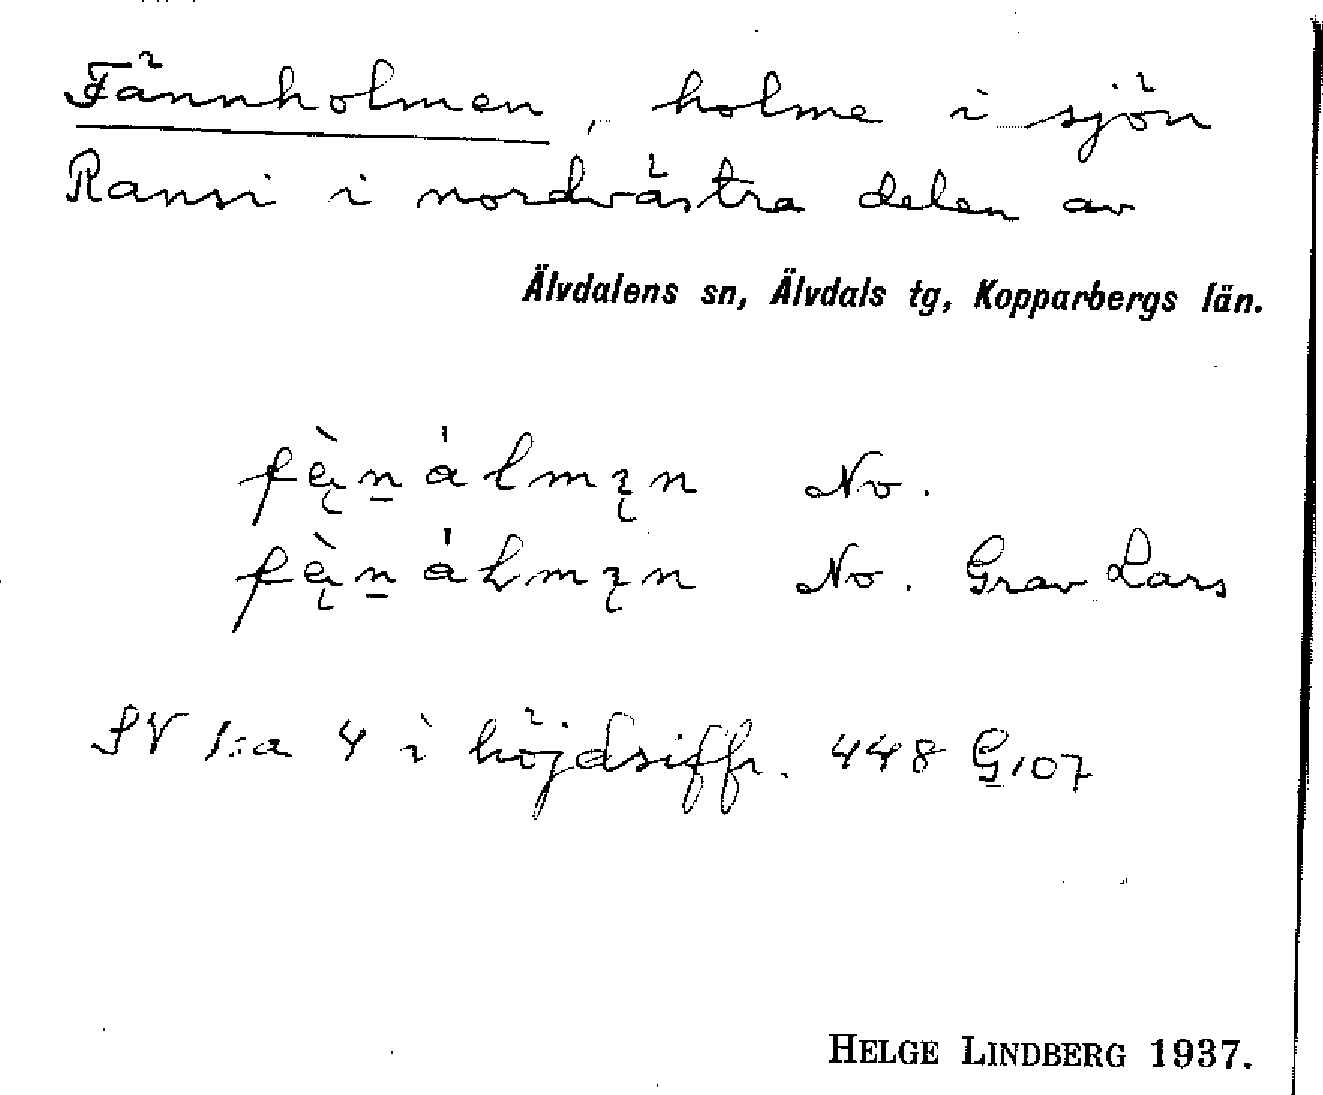 Fännholmen, holme i sjön
Ransi i nordvästra delen av
Älvdalens sn, Älvdals tg, Kopparbergs län.
No.
No. Grav Lars
SV 1:a 4 i höjdsiffr. 448 G107
HELGE LINDBERG 1937.